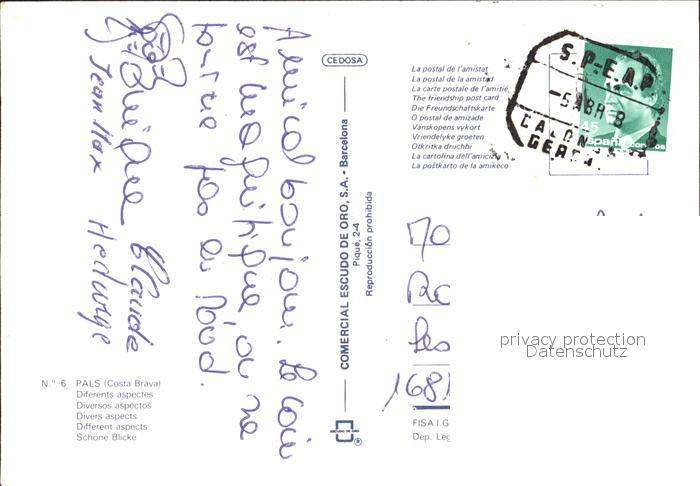 Amical bonjour. Le coin
est magnifique, on ne
tourne pas au Nord.
Monique Claude
Jean Max Hedwige
CEDOSA
COMERCIAL ESCUDO DE ORO, S.A. - Barcelona
Piqué, 2-4
Reproducción prohibida
ESCUDO DE ORO
®
La postal de l'amistat
La postal de la amistad
La carte postale de l'amitié
The friendship post card
Die Freundschaftskarte
O postal de amizade
Vanskopens vykort
Vriendelyke groeten
Otkritka druchbi
La cartolina dell'amicizia
La poŝtkarto de la amikeco
S.P.-E.A.P
-5 ABR 8
CALON
GER
45
España correos
70
1681
privacy protection
Datenschutz
N.º 6 PALS (Costa Brava)
Diferents aspectes
Diversos aspectos
Divers aspects
Different aspects
Schöne Blicke
FISA I.G
Dep. Leg